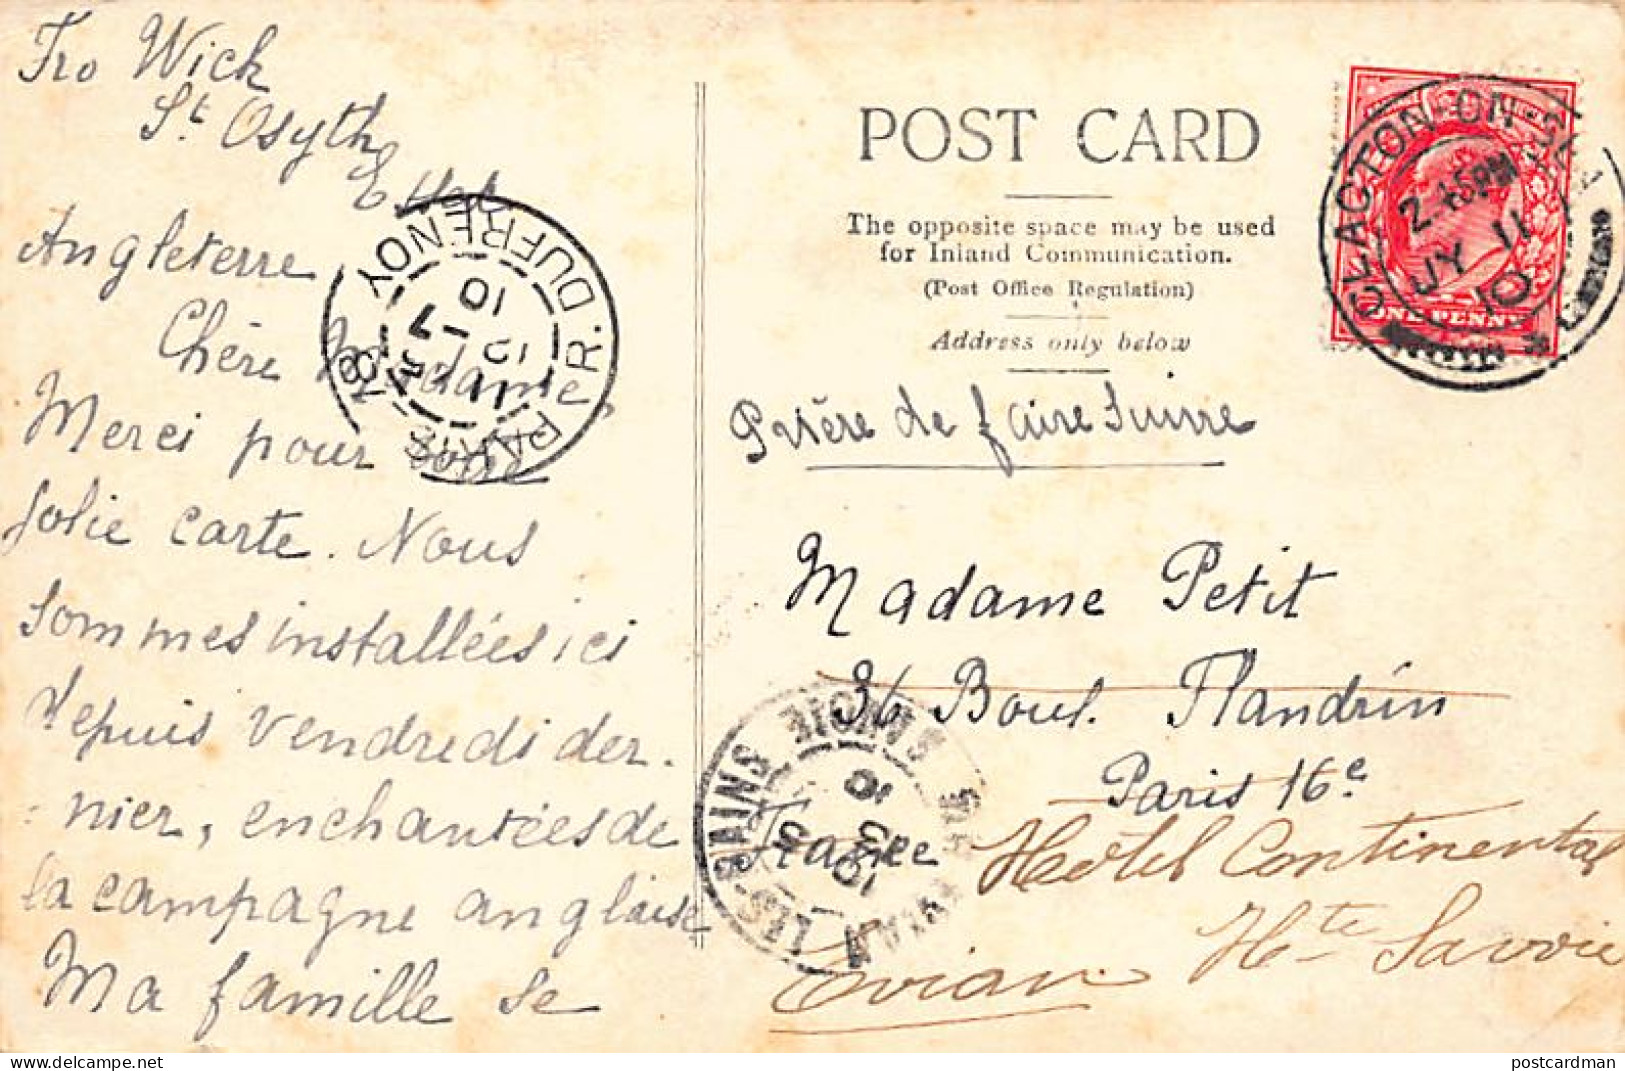 Fro Wick
St Osyth
Essex
Angleterre
Chère Madame,
Merci pour votre
jolie carte. Nous
sommes installées ici
depuis vendredi der-
nier, enchantées de
la campagne anglaise
Ma famille se
POST CARD
The opposite space may be used
for Inland Communication.
(Post Office Regulation)
Address only below
Prière de faire suivre
Madame Petit
36 Boul. Flandrin
Paris 16e
France
Hôtel Continental
Evian Hte Savoie
CLACTON-ON-SEA
2.45PM
JY 11
10
ONE PENNY
PARIS 18 R. DUFRÉNOY
11
12 - 7
10
LES BAINS
10
postcardman
delcampe.net